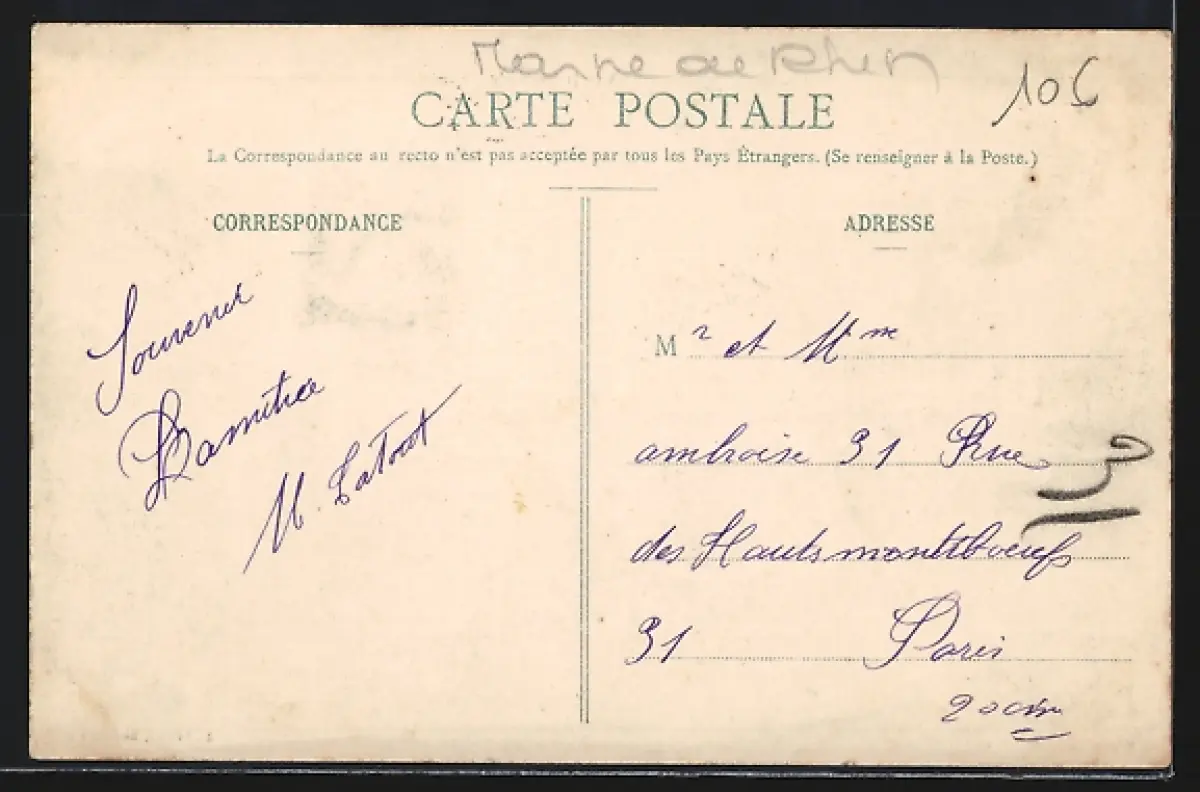 Marne au Rhin
10€
CARTE POSTALE
La Correspondance au recto n'est pas acceptée par tous les Pays Étrangers. (Se renseigner à la Poste.)
CORRESPONDANCE
Souvenir
D'amitié
M. Latout
ADRESSE
M r et Mme
ambroise 31 Rue
des Hauts montiboeufs
31 Paris
20